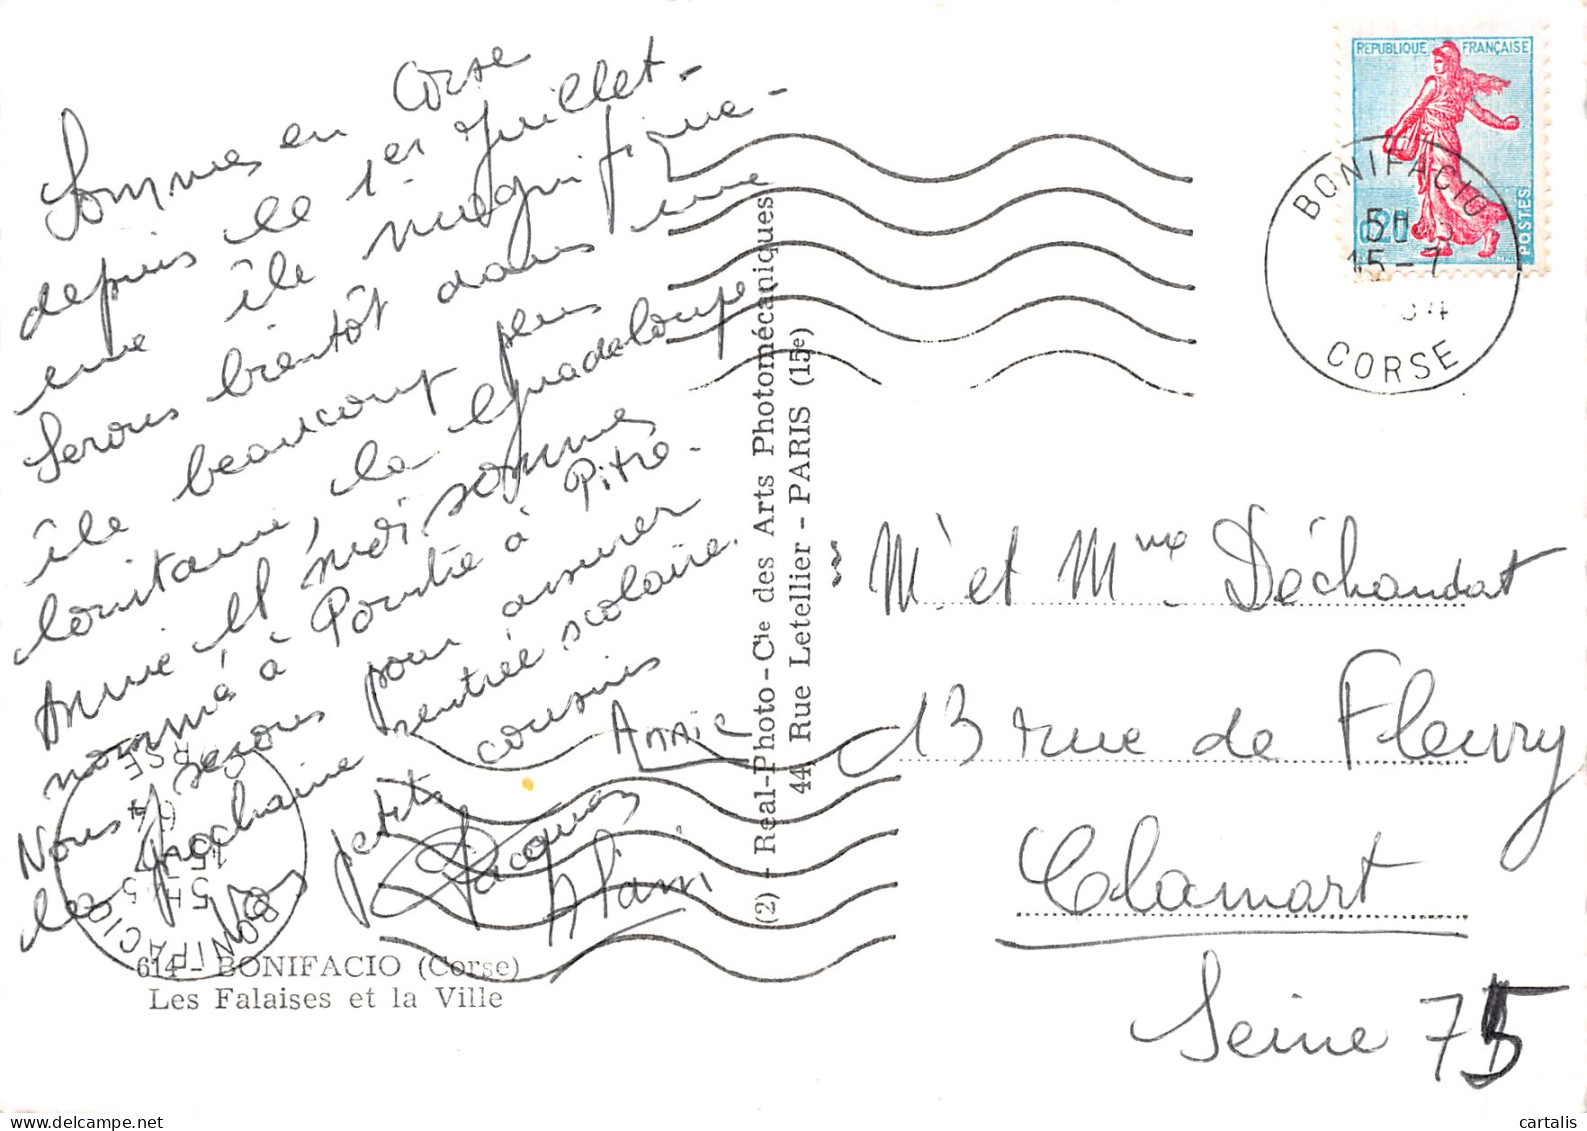 Sommes en Corse
depuis le 1er Juillet -
une île magnifique -
Serons bientôt dans une
île beaucoup plus
lointaine, la Guadeloupe,
Annie et moi sommes
nommé à Pointe à Pitre -
Nous serons pour assurer
la prochaine rentrée scolaire.
petits cousins
Annie
Jacques
Alain
614 - BONIFACIO (Corse)
Les Falaises et la Ville
(2) - Real-Photo - Cie des Arts Photomécaniques
44, Rue Letellier - PARIS (15e)
REPUBLIQUE FRANÇAISE
0,20
POSTES
BONIFACIO
15 - 7
CORSE
BONIFACIO
5H
15-7
64
CORSE
Mr et Mme Déchandat
13 rue de Fleury
Clamart
Seine 75
cartalis sur www.delcampe.net